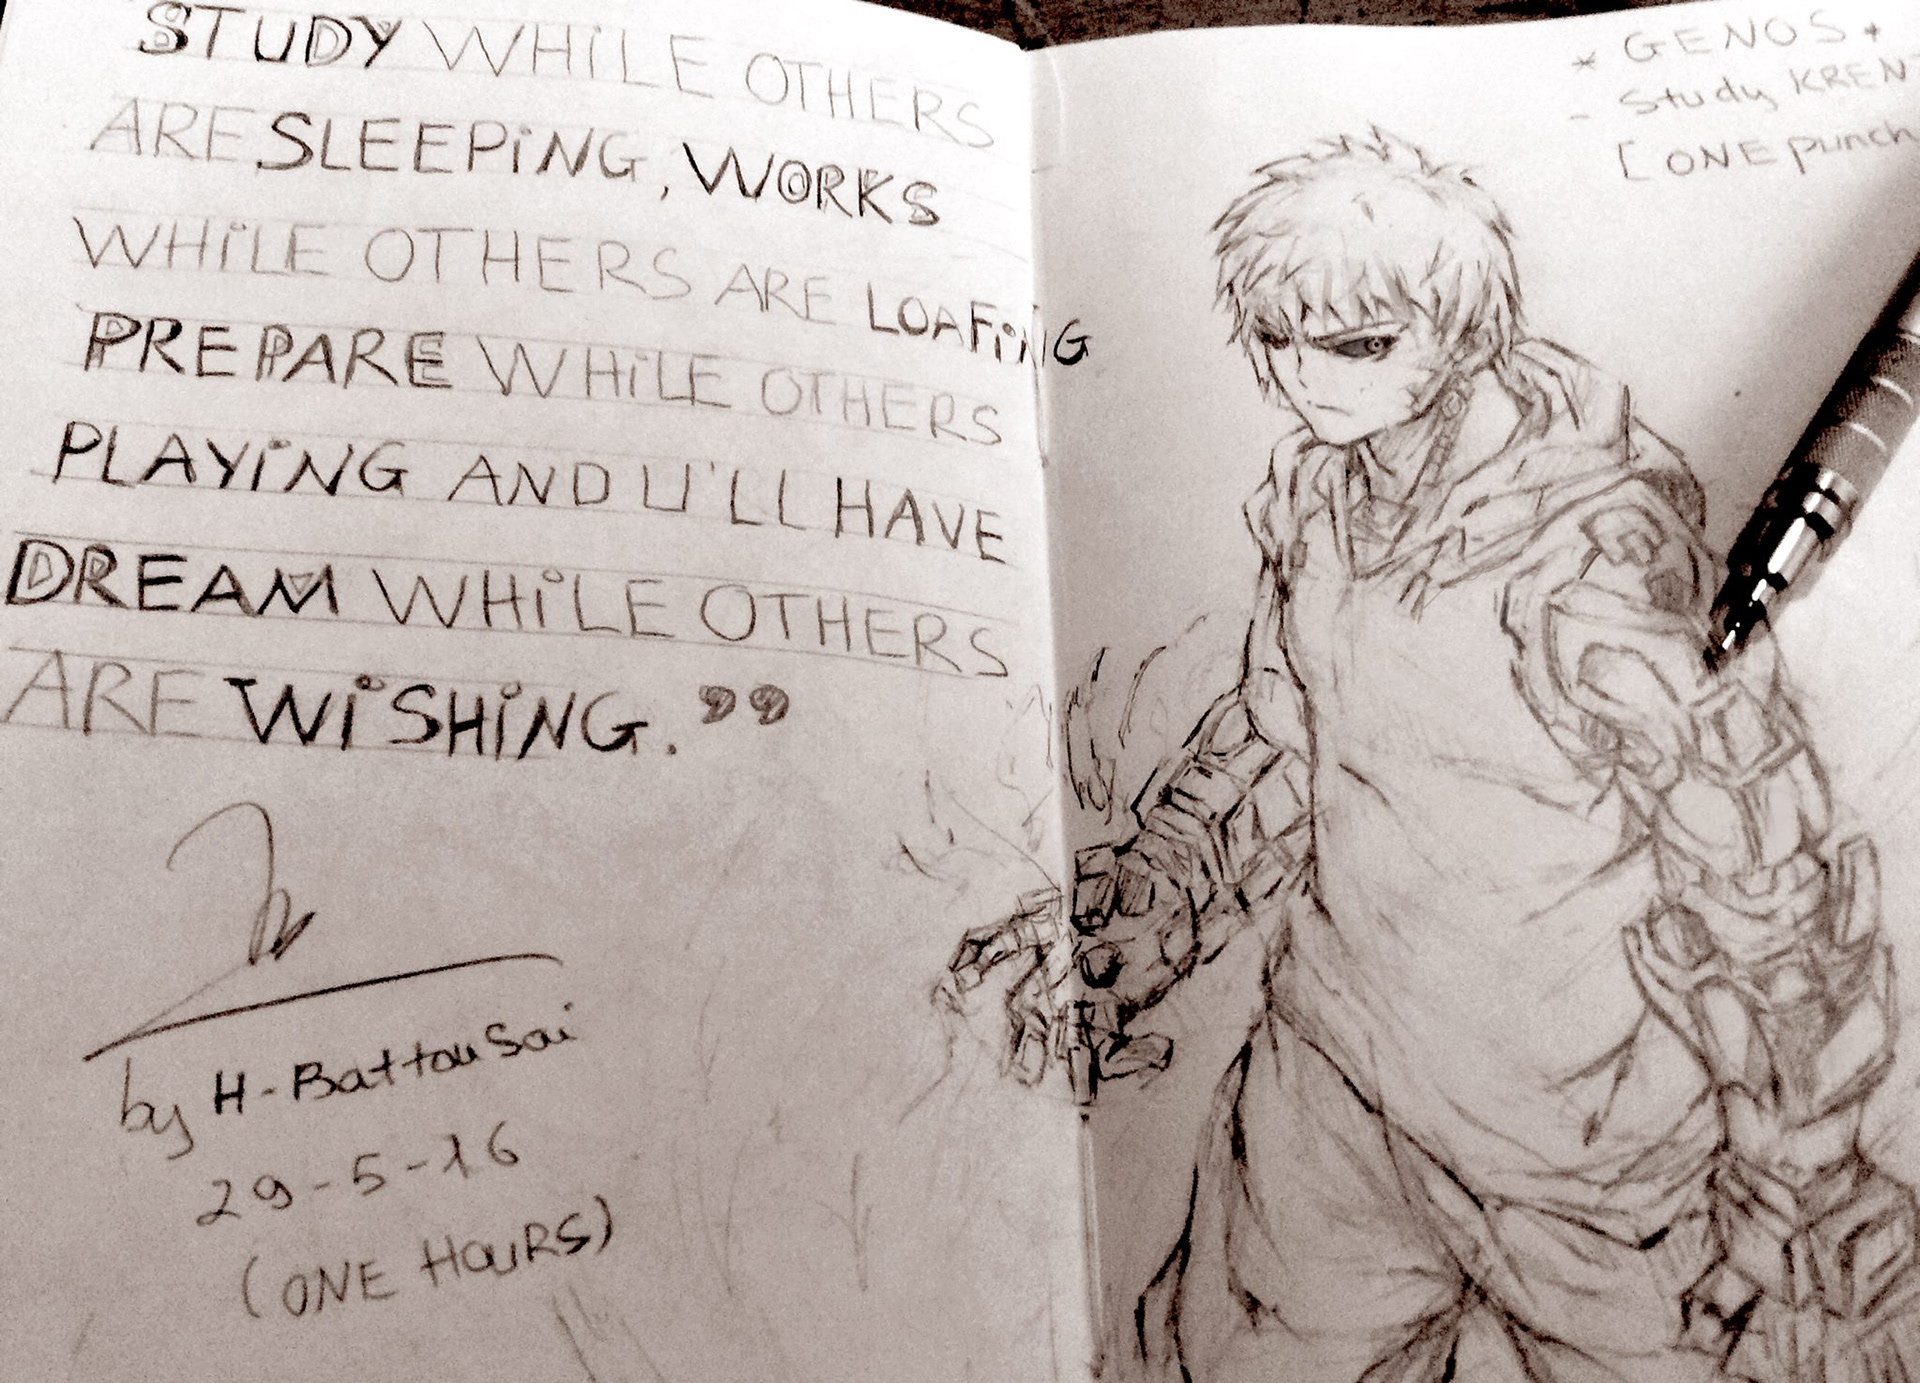 STUDY WHiLE OTHERS
ARE SLEEPiNG, WORKS
WHiLE OTHERS ARE LOAFiNG
PREPARE WHiLE OTHERS
PLAYiNG AND U'LL HAVE
DREAM WHiLE OTHERS
ARE WiSHiNG.”
by H-BattouSai
29-5-16
(ONE HOURS)
* GENOS *
- Study KREN
[ONE punch